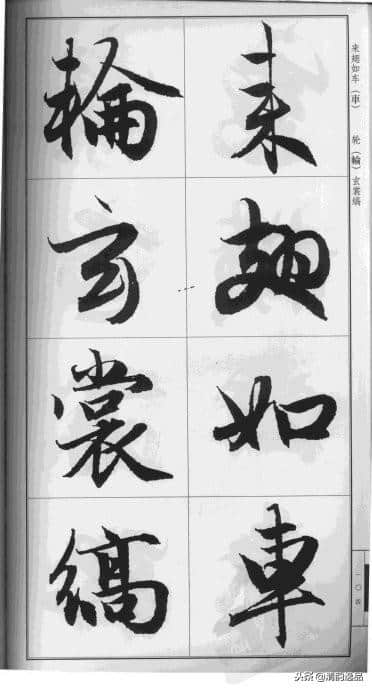 来翅如車
輪玄裳縞
来翅如车（車） 轮（輪）玄裳缟
头条@清韵逸品